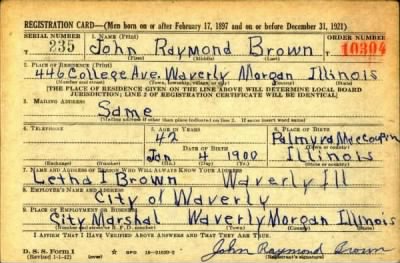 REGISTRATION CARD—(Men born on or after February 17, 1897 and on or before December 31, 1921)
SERIAL NUMBER 1. NAME (Print) ORDER NUMBER
235 John Raymond Brown 10304
(First) (Middle) (Last)
2. PLACE OF RESIDENCE (Print)
446 College Ave. Waverly Morgan Illinois
(Number and street) (Town, township, village, or city) (County) (State)
[THE PLACE OF RESIDENCE GIVEN ON THE LINE ABOVE WILL DETERMINE LOCAL BOARD
JURISDICTION; LINE 2 OF REGISTRATION CERTIFICATE WILL BE IDENTICAL]
3. MAILING ADDRESS
Same
[Mailing address if other than place indicated on line 2. If same insert word same]
4. TELEPHONE 5. AGE IN YEARS 6. PLACE OF BIRTH
42 Palmyra Macoupin
DATE OF BIRTH (Town or county)
Jan 4 1900 Illinois
(Exchange) (Number) (Mo.) (Day) (Yr.) (State or country)
7. NAME AND ADDRESS OF PERSON WHO WILL ALWAYS KNOW YOUR ADDRESS
Letha I Brown Waverly Ill
8. EMPLOYER'S NAME AND ADDRESS
City of Waverly
9. PLACE OF EMPLOYMENT OR BUSINESS
City Marshal Waverly Morgan Illinois
(Number and street or R. F. D. number) (Town) (County) (State)
I AFFIRM THAT I HAVE VERIFIED ABOVE ANSWERS AND THAT THEY ARE TRUE.
D. S. S. Form 1
(Revised 1-1-42) (over) GPO John Raymond Brown